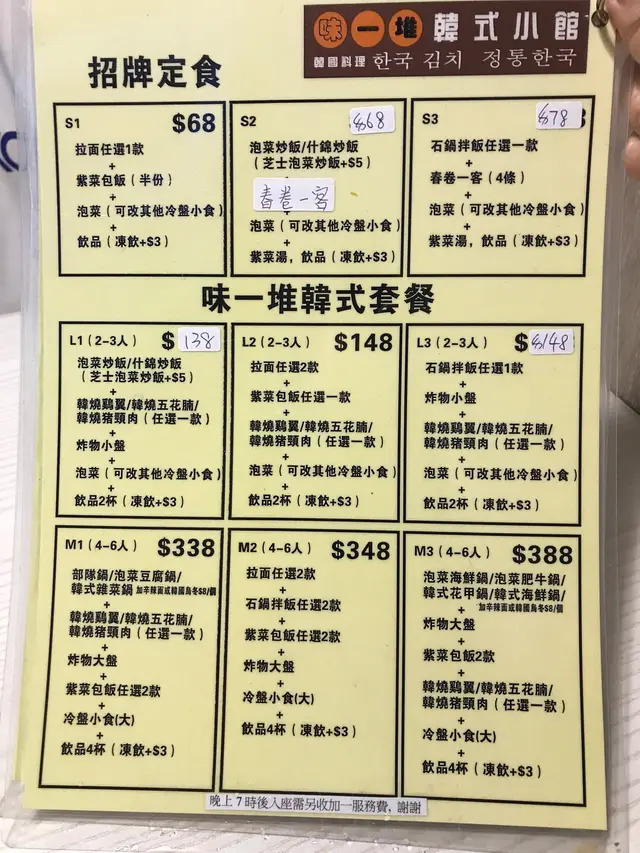 味一堆 韓式小館
韓國料理 한국 김치 정통한국
招牌定食
S1 $68
拉面任選1款
+
紫菜包飯（半份）
+
泡菜（可改其他冷盤小食）
+
飲品（凍飲+$3）
S2 $68
泡菜炒飯/什錦炒飯
（芝士泡菜炒飯+$5）
春卷一客
泡菜（可改其他冷盤小食）
+
紫菜湯，飲品（凍飲+$3）
S3 $78
石鍋拌飯任選一款
+
春卷一客（4條）
+
泡菜（可改其他冷盤小食）
+
紫菜湯，飲品（凍飲+$3）
味一堆韓式套餐
L1（2-3人） $138
泡菜炒飯/什錦炒飯
（芝士泡菜炒飯+$5）
+
韓燒鷄翼/韓燒五花腩/
韓燒猪頸肉（任選一款）
+
炸物小盤
+
泡菜（可改其他冷盤小食）
+
飲品2杯（凍飲+$3）
L2（2-3人） $148
拉面任選2款
+
紫菜包飯任選一款
+
韓燒鷄翼/韓燒五花腩/
韓燒猪頸肉（任選一款）
+
泡菜（可改其他冷盤小食）
+
飲品2杯（凍飲+$3）
L3（2-3人） $148
石鍋拌飯任選1款
+
炸物小盤
+
韓燒鷄翼/韓燒五花腩/
韓燒猪頸肉（任選一款）
+
泡菜（可改其他冷盤小食）
+
飲品2杯（凍飲+$3）
M1（4-6人） $338
部隊鍋/泡菜豆腐鍋/
韓式雜菜鍋 加辛辣面或韓國烏冬$8/個
+
韓燒鷄翼/韓燒五花腩/
韓燒猪頸肉（任選一款）
+
炸物大盤
+
紫菜包飯任選2款
+
冷盤小食(大)
+
飲品4杯（凍飲+$3）
M2（4-6人） $348
拉面任選2款
+
石鍋拌飯任選2款
+
紫菜包飯任選2款
+
炸物大盤
+
冷盤小食(大)
+
飲品4杯（凍飲+$3）
M3（4-6人） $388
泡菜海鮮鍋/泡菜肥牛鍋/
韓式花甲鍋/韓式海鮮鍋/
加辛辣面或韓國烏冬$8/個
+
炸物大盤
+
紫菜包飯2款
+
韓燒鷄翼/韓燒五花腩/
韓燒猪頸肉（任選一款）
+
冷盤小食(大)
+
飲品4杯（凍飲+$3）
晚上7時後入座需另收加一服務費，謝謝